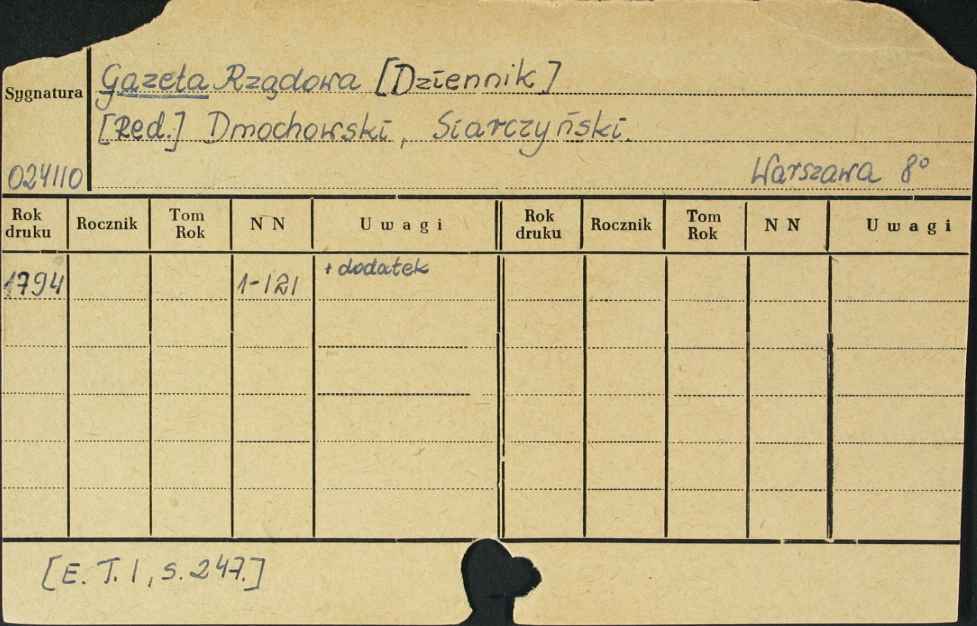 Gazeta Rządowa [Dziennik]
Sygnatura
[Red.] Dmochowski, Siarczyński.
024110
Warszawa 8°
Rok druku Rocznik Tom Rok NN Uwagi Rok druku Rocznik Tom Rok NN Uwagi
1794 1-121 + dodatek
[E. T. 1, s. 247.]